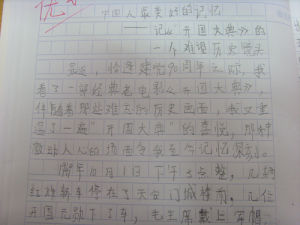 优
中国人最美好的记忆
——记《开国大典》的
一个难忘历史镜头
最近，恰逢建党90周年之际，我
看了一部经典老电影《开国大典》，
伴随着那些难忘的历史画面，我又重
温了一遍"开国大典"的喜悦，那种
激动人心的场面令我至今记忆深刻。
10月1日下午3点整，几辆
红旗轿车停在了天安门城楼前，几位
开国元勋下了车，毛主席戴上军帽，